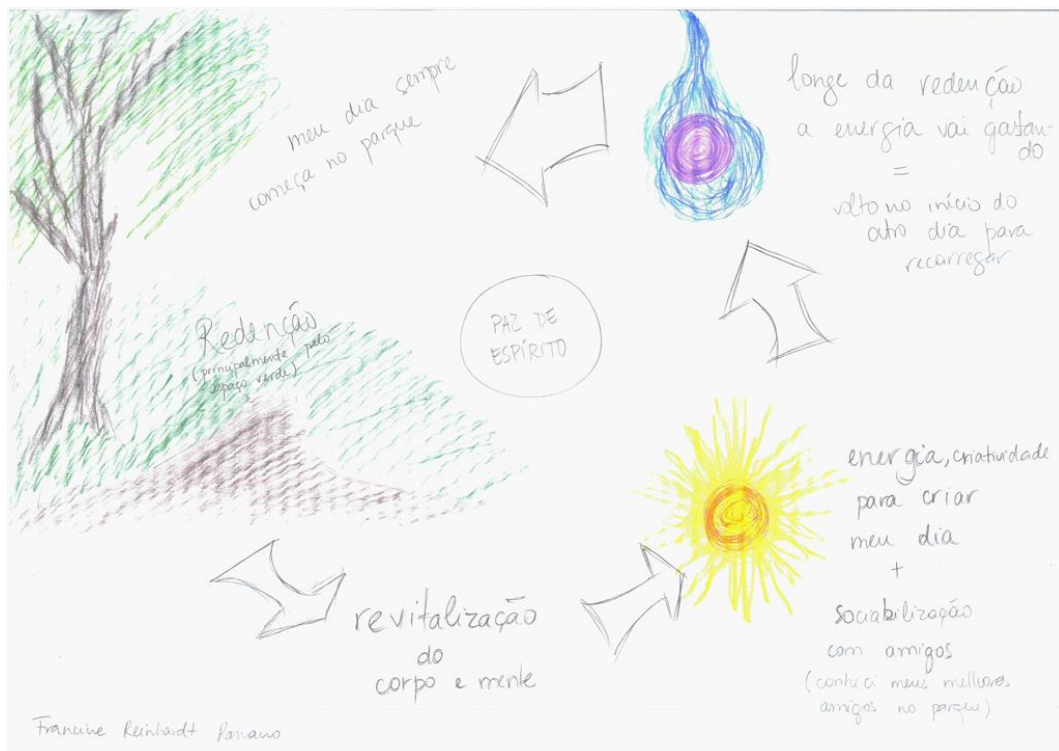 meu dia sempre
começa no parque
longe da redenção
a energia vai gastan-
do
=
volto no início do
outro dia para
recarregar
PAZ DE
ESPÍRITO
Redenção
(principalmente pelo
espaço verde)
energia, criatividade
para criar
meu dia
+
sociabilização
com amigos
(conheci meus melhores
amigos no parque)
revitalização
do
corpo e mente
Francine Reinhardt